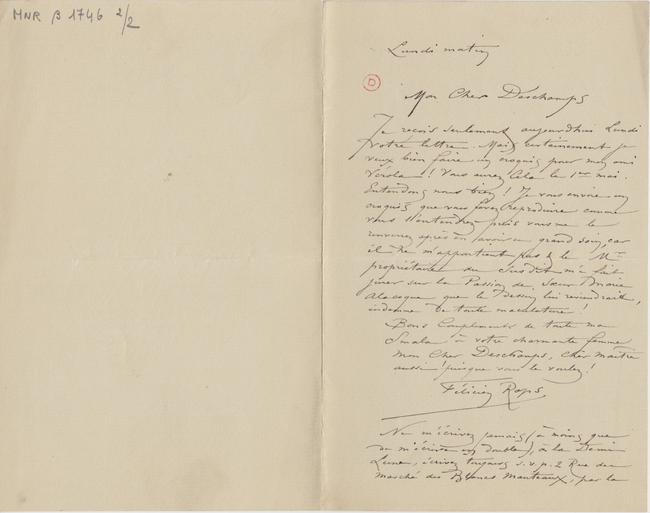 MNR β 1746 2/2
Lundi matin
D
Mon Cher Deschamps
Je reçois seulement aujourdhui Lundi
votre lettre. Mais certainement je
veux bien faire un croquis pour mon ami
Verola! Vous aurez cela le 1er mai.
Entendons nous bien! Je vous envoie un
croquis que vous ferez reproduire comme
vous l'entendrez puis vous me le
renverrez après en avoir eu grand soin, car
il ne m'appartient pas & le Mr
propriétaire du susdit m'a fait
jurer sur la Passion de Sœur Marie
Alacoque que le Dessin lui reviendrait,
indemne de toute maculature!
Bons Compliments de toute ma
Smala à votre charmante femme
mon Cher Deschamps, cher maître
aussi puisque vous le voulez!
Félicien Rops
Ne m'écrivez jamais, (à moins que
de m'écrire en double), à la Demi
Lune, écrivez toujours s.v.p. 2 Rue du
marché des Blancs Manteaux, par la